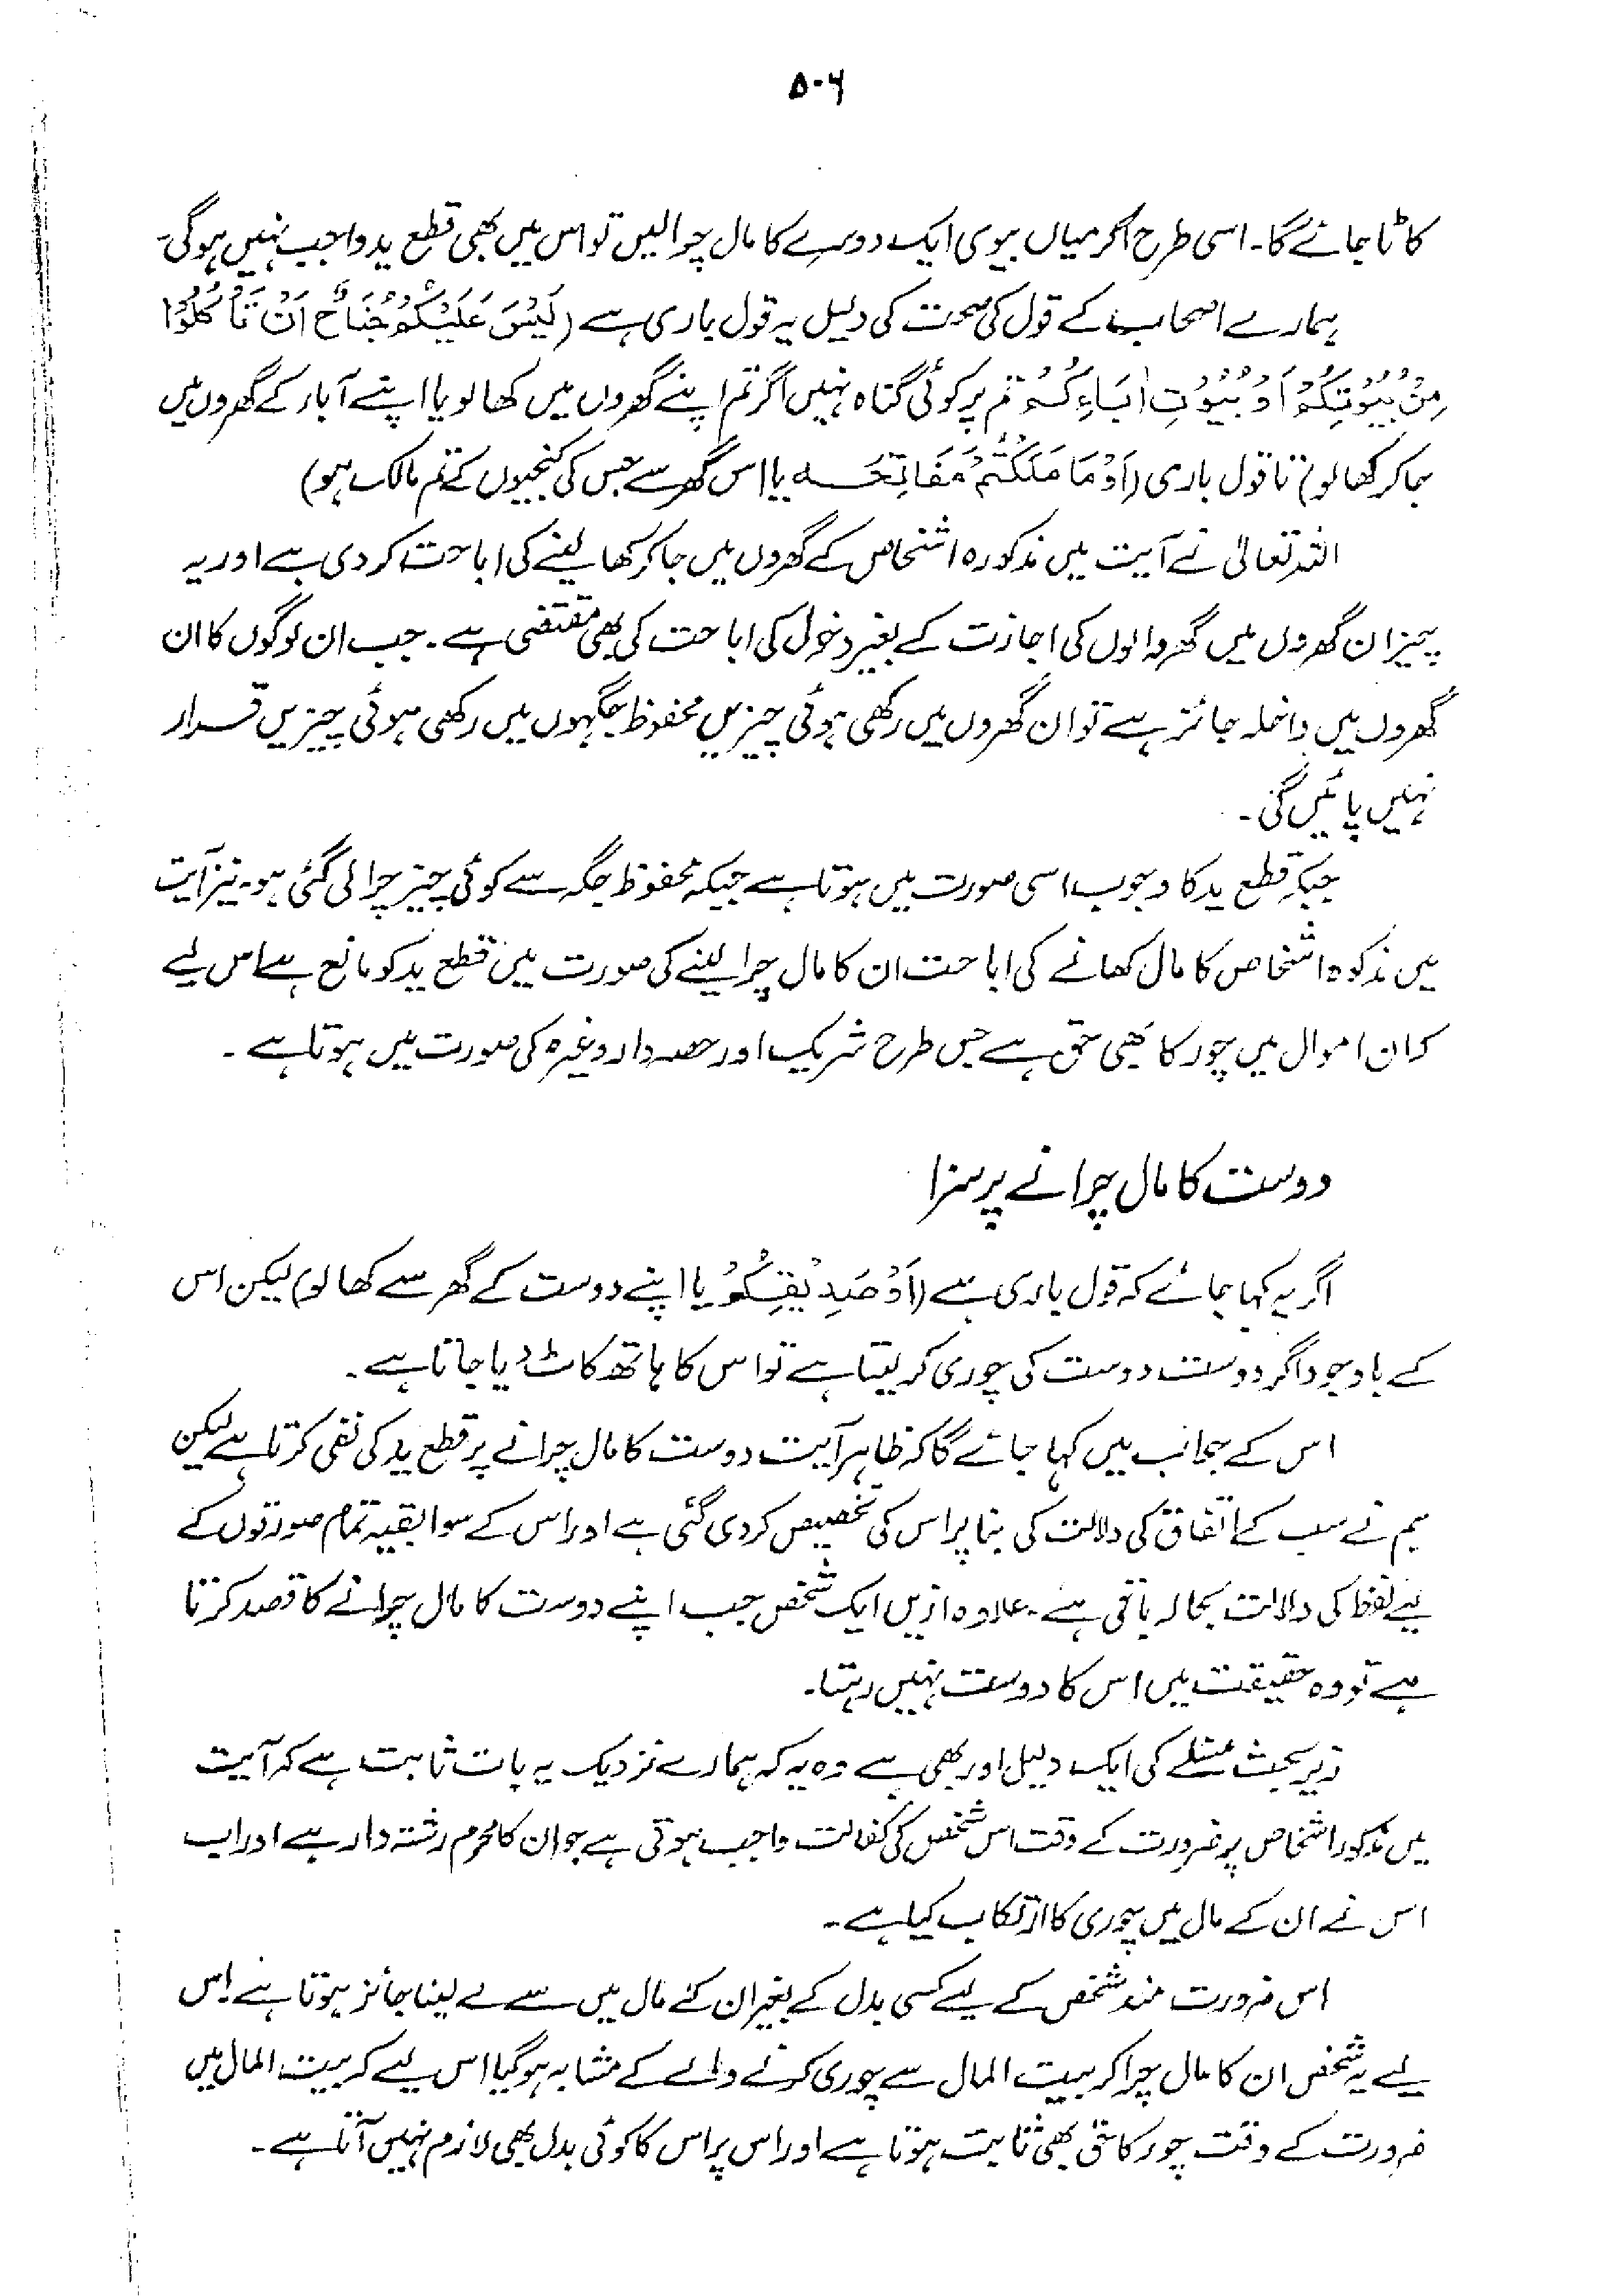 ۵۰۶
کاٹا جائے گا۔ اسی طرح اگر میاں بیوی ایک دوسرے کا مال چرا لیں تو اس میں بھی قطع ید واجب نہیں ہوگی۔
ہمارے اصحاب کے قول کی صحت کی دلیل یہ قول باری ہے (لَیْسَ عَلَیْکُمْ جُنَاحٌ اَنْ تَأْکُلُوْا
مِنْ بُیُوْتِکُمْ اَوْ بُیُوْتِ اٰبَاءِکُمْ تم پر کوئی گناہ نہیں اگر تم اپنے گھروں میں کھا لو یا اپنے آباء کے گھروں میں
جا کر کھا لو) تا قول باری (اَوْ مَا مَلَکْتُمْ مَفَاتِحَہ یا اس گھر سے جس کی کنجیوں کے تم مالک ہو)
اللہ تعالیٰ نے آیت میں مذکورہ اشخاص کے گھروں میں جا کر کھا لینے کی اباحت کر دی ہے اور یہ
چیز ان گھروں میں گھر والوں کی اجازت کے بغیر دخول کی اباحت کی بھی مقتضی ہے۔ جب ان لوگوں کا ان
گھروں میں داخلہ جائز ہے تو ان گھروں میں رکھی ہوئی چیزیں محفوظ جگہوں میں رکھی ہوئی چیزیں قرار
نہیں پائیں گی۔
جبکہ قطع ید کا وجوب اسی صورت میں ہوتا ہے جبکہ محفوظ جگہ سے کوئی چیز چرا لی گئی ہو۔ نیز آیت
میں مذکورہ اشخاص کا مال کھانے کی اباحت ان کا مال چرا لینے کی صورت میں قطع ید کو مانع ہے اس لیے
کہ ان اموال میں چور کا بھی حق ہے جس طرح شریک اور حصہ دار وغیرہ کی صورت میں ہوتا ہے۔
دوست کا مال چرانے پر سزا
اگر یہ کہا جائے کہ قول باری ہے (اَوْ صَدِیْقِکُمْ یا اپنے دوست کے گھر سے کھا لو) لیکن اس
کے باوجود اگر دوست دوست کی چوری کر لیتا ہے تو اس کا ہاتھ کاٹ دیا جاتا ہے۔
اس کے جواب میں کہا جائے گا کہ ظاہر آیت دوست کا مال چرانے پر قطع ید کی نفی کرتا ہے لیکن
ہم نے سب کے اتفاق کی دلالت کی بنا پر اس کی تخصیص کر دی گئی ہے اور اس کے سوا بقیہ تمام صورتوں کے
لیے لفظ کی دلالت بحالہ باقی ہے۔ علاوہ ازیں ایک شخص جب اپنے دوست کا مال چرانے کا قصد کرتا
ہے تو وہ حقیقت میں اس کا دوست نہیں رہتا۔
زیر بحث مسئلے کی ایک دلیل اور بھی ہے وہ یہ کہ ہمارے نزدیک یہ بات ثابت ہے کہ آیت
میں مذکور اشخاص پر ضرورت کے وقت اس شخص کی کفالت واجب ہوتی ہے جو ان کا محرم رشتہ دار ہے اور اب
اس نے ان کے مال میں چوری کا ارتکاب کیا ہے۔
اس ضرورت مند شخص کے لیے کسی بدل کے بغیر ان کے مال میں سے لے لینا جائز ہوتا ہے اس
لیے یہ شخص ان کا مال چرا کر بیت المال سے چوری کرنے والے کے مشابہ ہو گیا اس لیے کہ بیت المال میں
ضرورت کے وقت چور کا حق بھی ثابت ہوتا ہے اور اس پر اس کا کوئی بدل بھی لازم نہیں آتا ہے۔